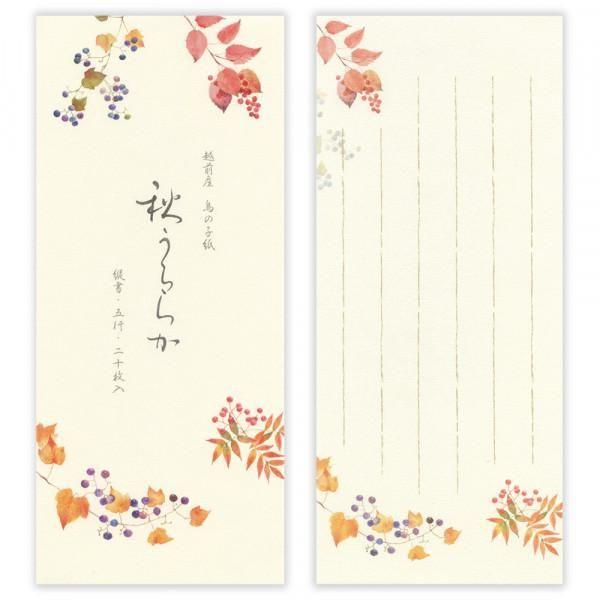 越前産 鳥の子紙
秋うらら​か
縦書・五行・二十枚入